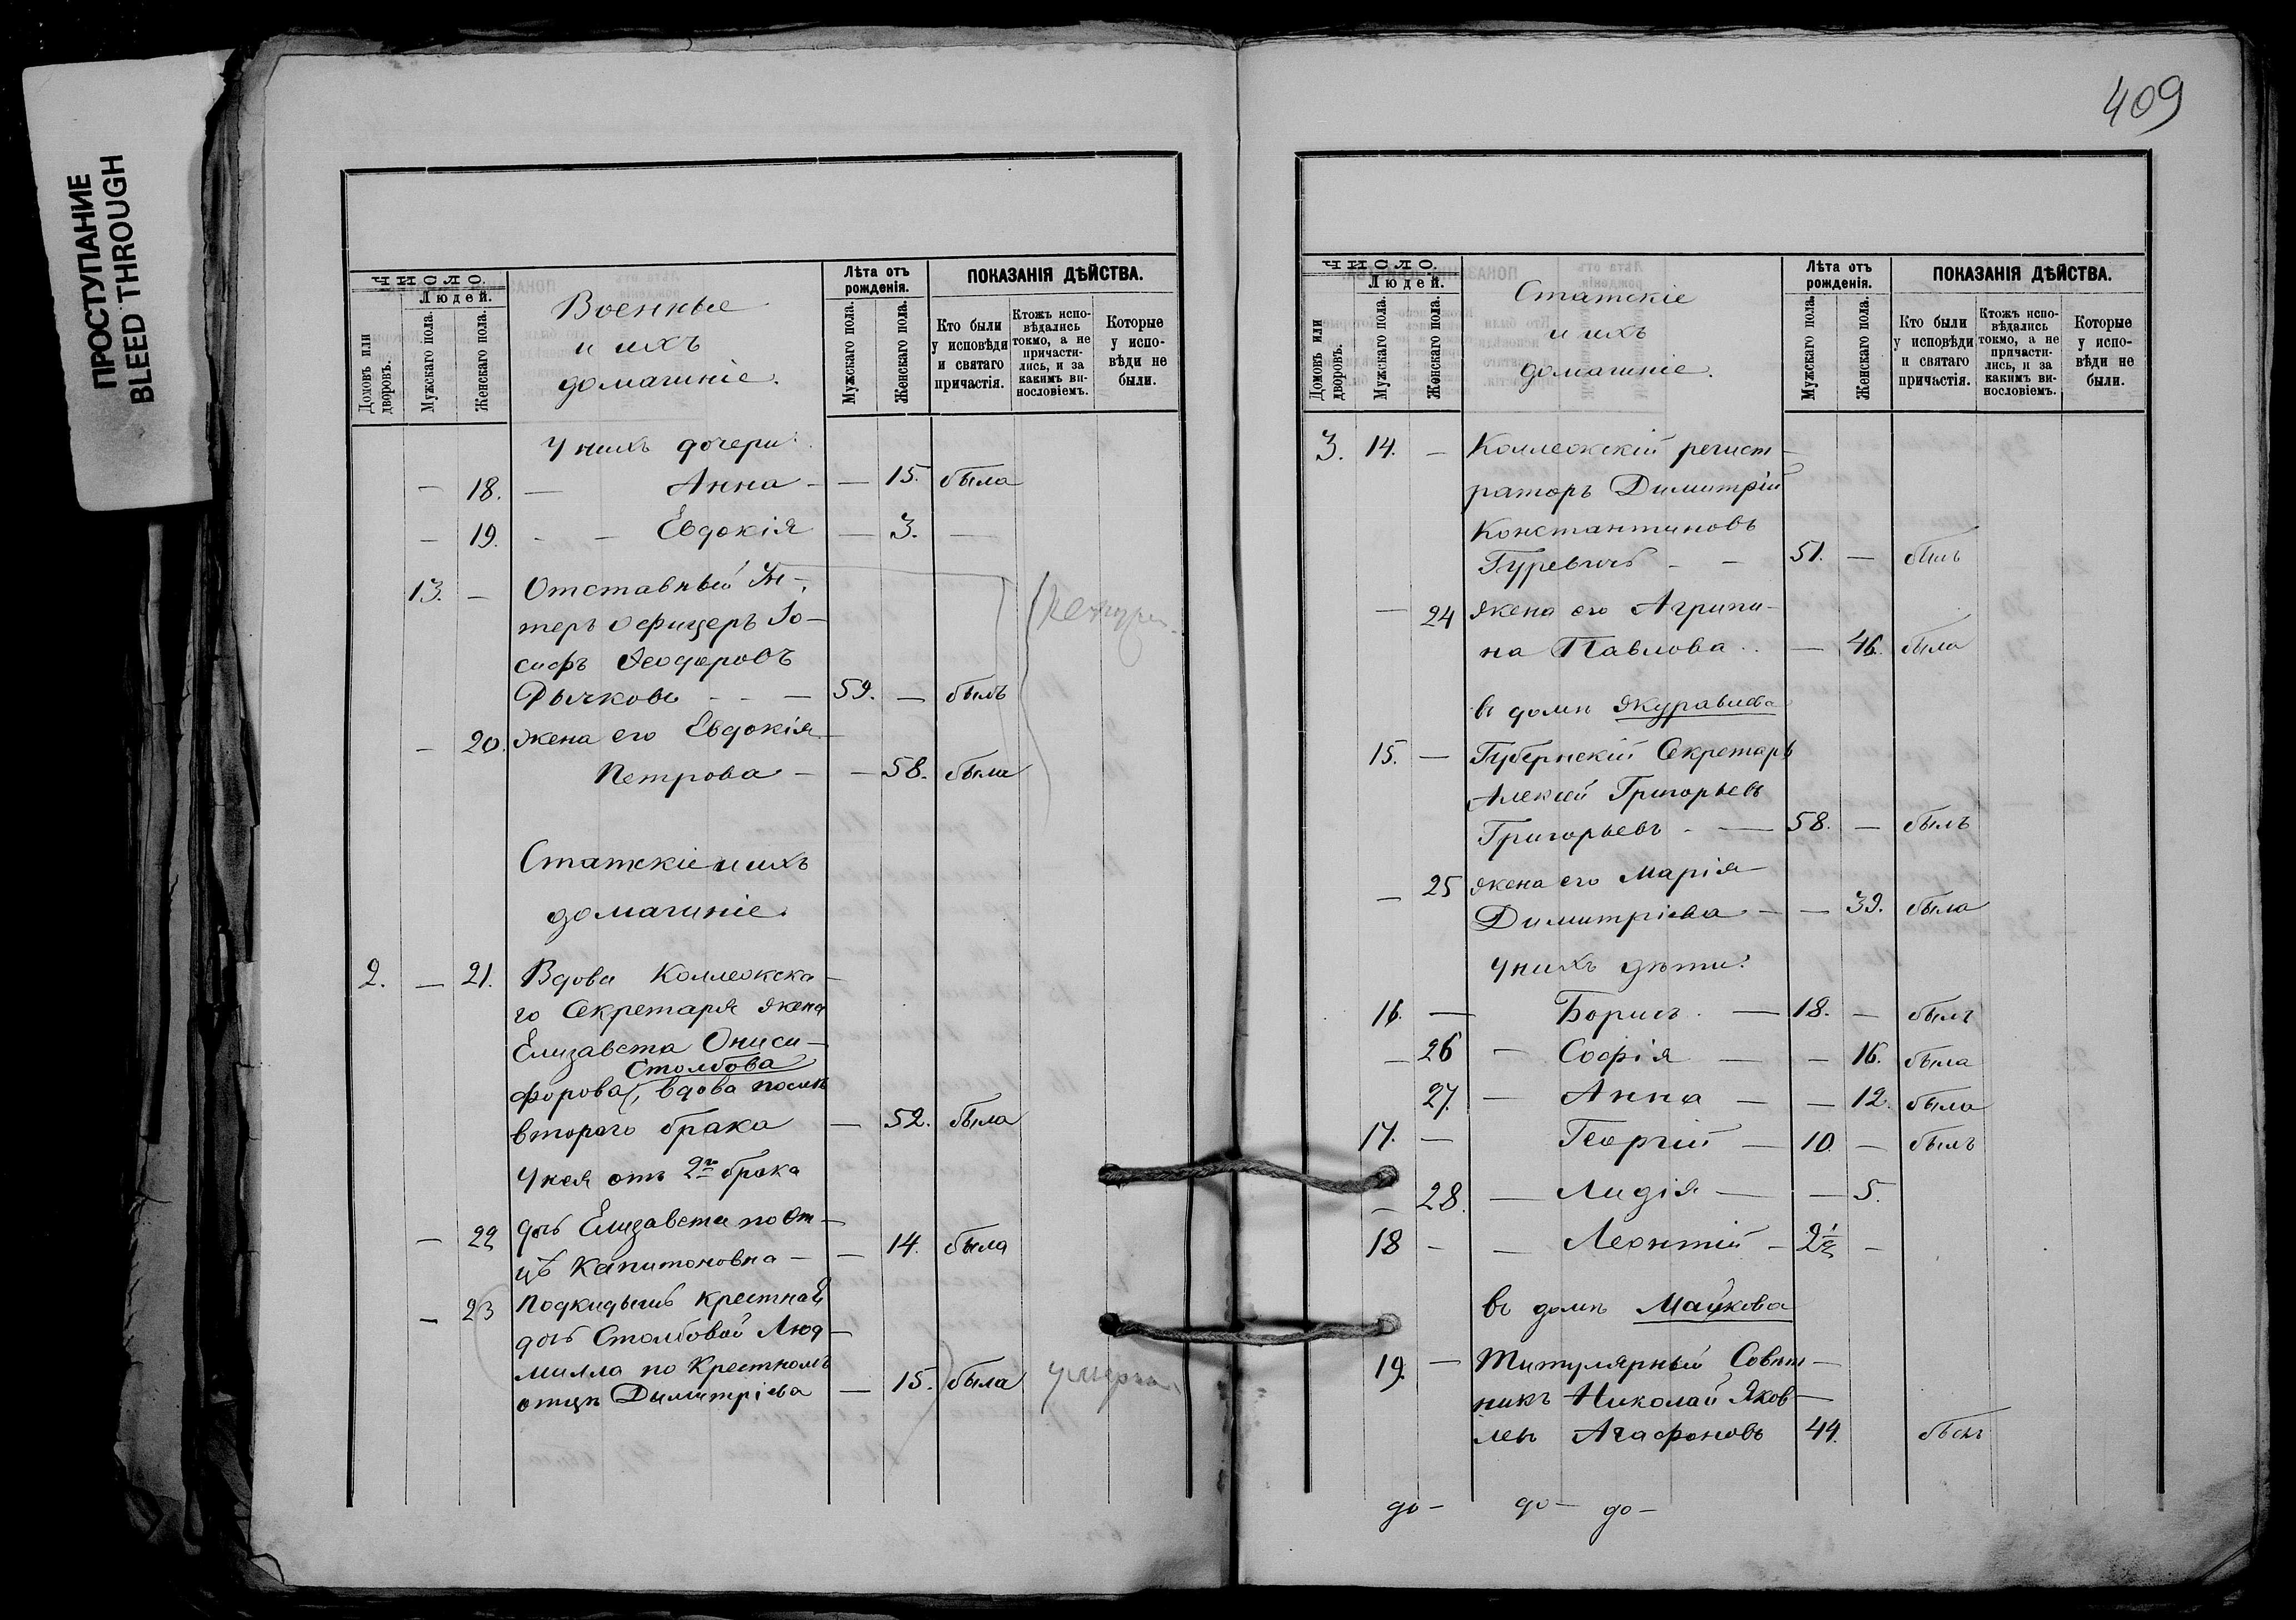 ПРОСТУПАНИЕ
BLEED THROUGH
ЧИСЛО.
Людей.
Домовъ или дворовъ.
Мужскаго пола.
Женскаго пола.
Военные
и ихъ
домашніе.
Лѣта отъ рожденія.
Мужскаго пола.
Женскаго пола.
ПОКАЗАНІЯ ДѢЙСТВА.
Кто были у исповѣди и святаго причастія.
Ктожъ исповѣдались токмо, а не причастились, и за какимъ винословіемъ.
Которые у исповѣди не были.
У нихъ дочери:
— 18. — Анна — — 15. была
— 19. — — Евдокія — 3. —
13. — Отставный Ун-
теръ офицеръ Іо-
сифъ Ѳеодоровъ
Рычковъ — — 59. — былъ
— 20. жена его Евдокія
Петрова — — 58. была
Статскіе и ихъ
домашніе.
2. — 21. Вдова Коллежска-
го Секретаря жена
Елизавета Ониси-
Столбова
форова, вдова послѣ
второго брака — 52. была
У нея отъ 2го брака
— 22 дочь Елизавета по От-
цѣ Капитоновна — — 14. была
— 23 Подкидышъ крестная
дочь Столбовой Люд-
милла по Крестномъ
отцѣ Димитріева — 15. была умерла
409
ЧИСЛО.
Людей.
Домовъ или дворовъ.
Мужскаго пола.
Женскаго пола.
Статскіе
и ихъ
домашніе.
Лѣта отъ рожденія.
Мужскаго пола.
Женскаго пола.
ПОКАЗАНІЯ ДѢЙСТВА.
Кто были у исповѣди и святаго причастія.
Ктожъ исповѣдались токмо, а не причастились, и за какимъ винословіемъ.
Которые у исповѣди не были.
3. 14. — Коллежскій регист-
раторъ Димитрій
Константиновъ
Гуревичъ — — 51. — былъ
— 24 жена его Агрипи-
на Павлова — 46. была
въ домѣ Журавлева
15. — Губернскій Секретарь
Алексѣй Григорьевъ
Григорьевъ — 58. — былъ
— 25 жена его Марія
Димитріева — — 39. была
У нихъ дѣти:
16. — Борисъ — 18. — былъ
— 26 — Софія — — 16. была
27. — Анна — — 12. была
17. — Георгій — 10 — былъ
— 28. — Лидія — — 5.
18 — — Леонтій — 2½ —
въ домѣ Майкова
19. — Титулярный Совѣт-
никъ Николай Яков-
левъ Агафоновъ 44. былъ
до— до— до—